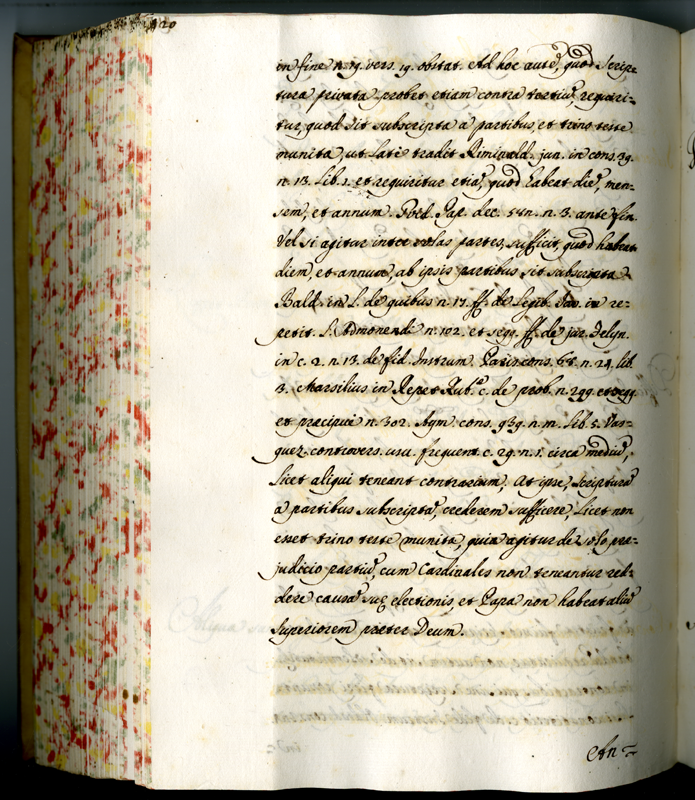 in fine n. 19. vers. 19. obstat. Ad hoc autē, quod scrip=
tura privata probet etiam contra tertiū, requiri=
tur, quod sit subscripta a partibus, et trino teste
munita, ut late tradit Riminald. jun. in cons. 39.
n. 13. lib. 1. et requiritur etiā, quod habeat diē, men=
sem, et annum. Pap. dec. n. 3. ante fin.
Vel si agitur inter partes, sufficit, quod habeat
diem, et annum, ab ipsis partibus sit subscripta
Bald. in L. de quibus n. 17. ff. de Legib. in re=
petit. L. Admonendi n. 102. et seqq. ff. de jur. Felyn.
in c. 2. n. 13. de fid. Instrum. Paris. cons. 68. n. 24. lib.
3. Marsilius in Repet. Rub.ᵃ c. de prob. n. 299. et seqq.
et præcipui n. 302. Aym. cons. 939. n. lib. 5. Vas=
quez controvers. usu. frequent. c. 29. n. 1. circa mediū,
licet aliqui teneant contrarium, At ipse, scripturā
a partibus subscriptā, crederem sufficere, licet non
esset trino teste munita, quia agitur de solo præ=
judicio partiū, cum Cardinales non teneantur red=
dere causā suę electionis, et Papa non habeat aliū
superiorem præter Deum.
An